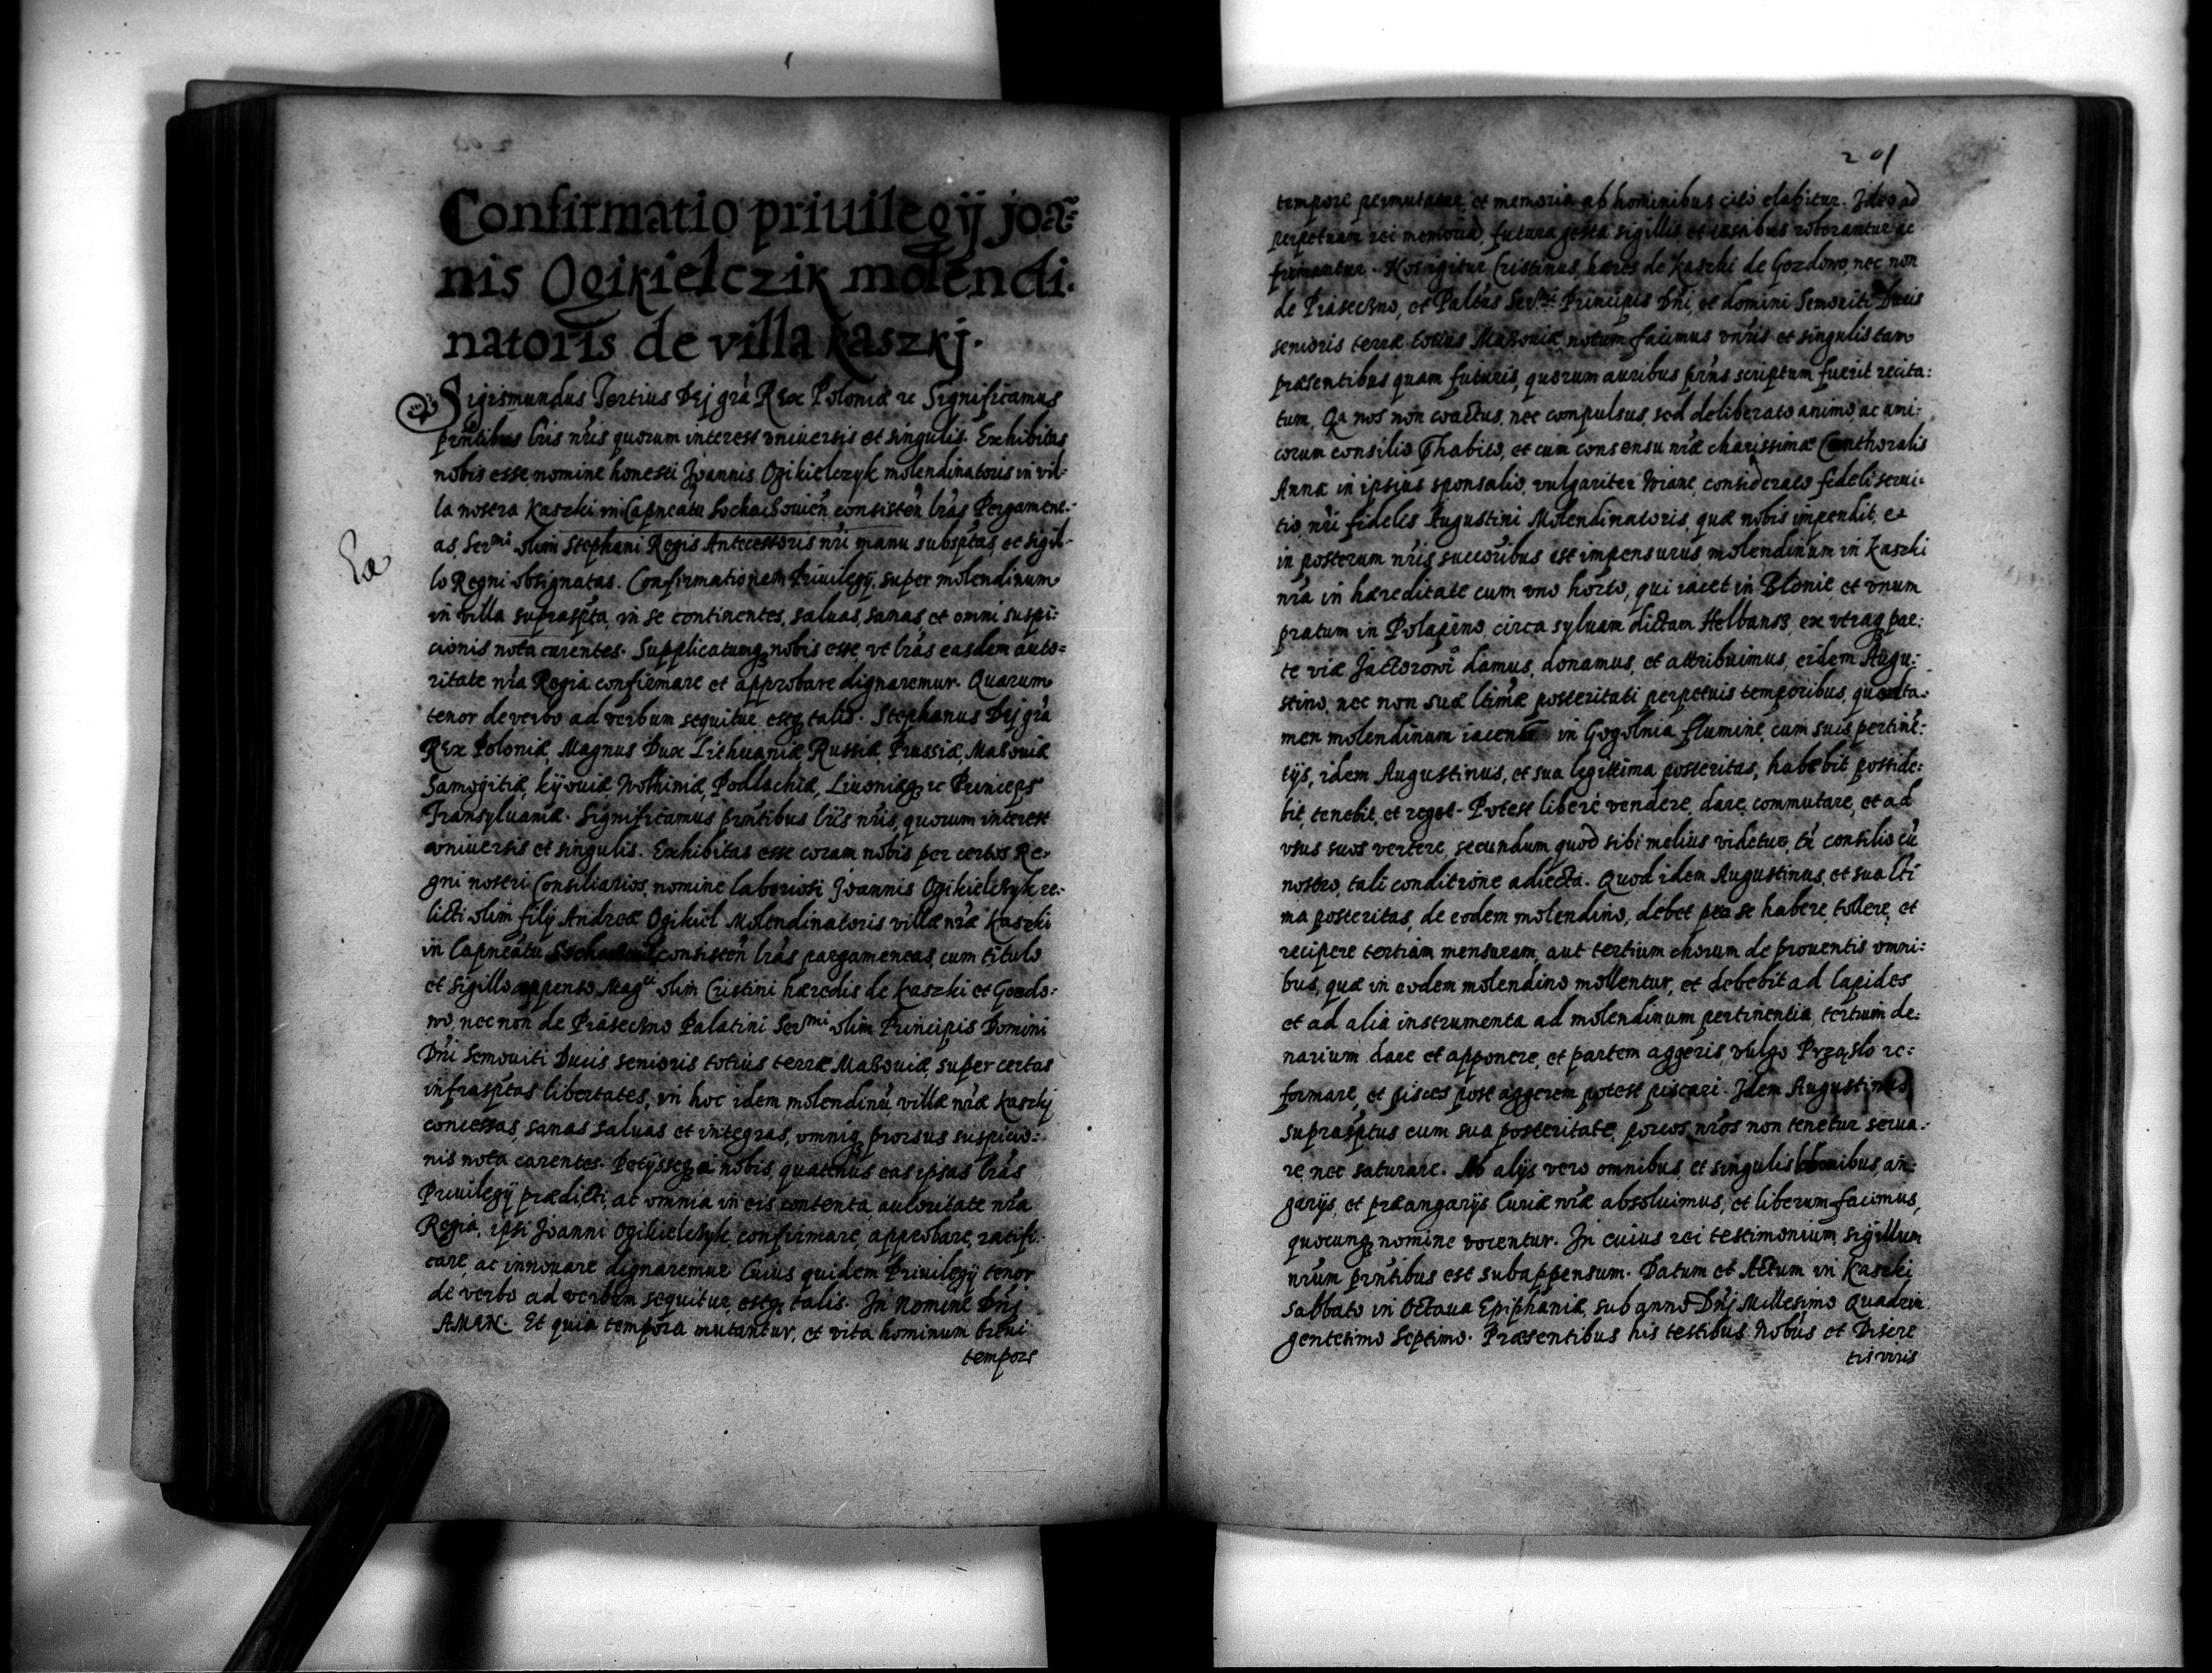 Confirmatio priuilegij joã=
nis Ogikielczik molendi.
natoris de villa kaszkj.
Sigismundus Tertius Dej grà Rex Poloniæ rc Significamus
pñtibus lris nr̃is quorum interest vniuersis et singulis. Exhibitas
nobis esse nomine honesti Joannis Ogikielczyk molendinatoris in vil-
la nostra Kaszki in Capneatu Sochaczouień consisteñ lrãs Pergamene-
as, Sermi olim Stephani Regis Antecessoris nri manu subsptas, et sigil-
lo Regni obsignatas. Confirmationem Priuilegij super molendinum
in villa supraspta in se continentes, saluas, sanas et omni suspi:
cionis nota carentes. Supplicatumq nobis esse vt lrãs easdem auto=
ritate nr̃a Regia confirmare et approbare dignaremur. Quarum
tenor de verbo ad verbum sequitur estq talis. Stephanus Dej grà
Rex Poloniæ, Magnus Dux Lithuaniæ Russiæ, Prussiæ, Masouiæ
Samogitiæ, kijouiæ Wolhiniæ, Podlachiæ, Liuoniæq rc Princeps
Transyluaniæ. Significamus pr̃ntibus lris nr̃is, quorum interest
vniuersis et singulis. Exhibitas esse coram nobis per certos Re-
gni nostri Consiliarios, nomine laboriosi Joannis Ogikielczyk re-
licti olim filij Andreæ Ogikiel Molendinatoris villæ nr̃æ Kaszki
in Capneatu consisteñ lrãs pargameneas, cum titulo
et sigillo appenso Magci olim Cristini hæredis de Kaszki et Gozdo:
wo, nec non de Piaseczno Palatini Sermi olim Principis Domini
Dñi Semouiti Ducis senioris totius terræ Masouiæ, super certas
infrasptas libertates, in hoc idem molendinũ villæ nr̃æ Kaszkj
concessas, sanas saluas et integras, omniq prorsus suspicio:
nis nota carentes. Petijsseq a nobis, quatenus eas ipsas lrãs
Priuilegij prædicti, ac omnia in eis contenta autoritate nr̃a
Regia, ipsi Joanni Ogikielczyk, confirmare, approbare, ratifi-
care, ac innouare dignaremur Cuius quidem Priuilegij tenor
de verbo ad verbum sequitur estq talis. In Nomine Dñj
AMEN. Et quia tempora mutantur, et vita hominum breui
tempore
201
tempore permutatur, et memoria ab hominibus cito elabitur. Ideo ad
perpetuam rei memoriã, futura gesta sigillis et testibus roborantur ac
firmantur. Nos igitur Cristinus hæres de Kaszki de Gozdowo, nec non
de Piaseczno, et Paltus Sermi Principis Dñi, et domini Semouiti Ducis
senioris terræ totius Masouiæ notum facimus vnris et singulis tam
præsentibus quam futuris, quorum auribus pr̃ns scriptum fuerit recita:
tum, Qa nos non coactus, nec compulsus, sed deliberato animo, ac ami:
corum consilio habito, et cum consensu nr̃æ charissimæ Conthoralis
Annæ in ipsius sponsalio, vulgariter Wiane, considerato fideli serui-
tio, nr̃i fidelis Augustini Molendinatoris, quæ nobis impendit, et
in posterum nr̃is succoribus est impensurus molendinum in Kaszki
nr̃a in hæreditate cum vno horto, qui iacet in Blonie et vnum
pratum in Polapino, circa syluam dictam Helbansz, ex vtraq par:
te viæ Jactorowi damus, donamus, et attribuimus, eidem Augu:
stino, nec non suæ ltimæ posteritati perpetuis temporibus, quod ta-
men molendinum iacens in Gogolnia flumine, cum suis pertine:
tijs, idem Augustinus, et sua legittima posteritas, habebit posside:
bit, tenebit, et reget. Potest liberè vendere, dare, commutare, et ad
vsus suos vertere, secundum quod sibi melius videtur, tñ consilio cũ
nostro, tali conditione adiecta. Quod idem Augustinus, et sua lti
ma posteritas, de eodem molendino, debet pro se habere, tollere, et
recipere tertiam mensuram, aut tertium chorum de prouentis omni:
bus, quæ in eodem molendino mollentur, et debebit ad lapides
et ad alia instrumenta ad molendinum pertinentia, tertium de:
narium dare et apponere, et partem aggeris, vulgo Prząslo re:
formare, et pisces post aggerem potest piscari. Idem Augustinus
suprasptus cum sua posteritate, porcos nr̃os non tenetur serua-
re nec saturare. Ab alijs vero omnibus, et singulis laboribus, an:
garijs, et præangarijs Curiæ nr̃æ absoluimus, et liberum facimus,
quocunq nomine vocentur. In cuius rei testimonium, sigillum
nr̃um pr̃ntibus est subappensum. Datum et Actum in Kaszki
sabbato in Octaua Epiphaniæ, sub anno Dñj Millesimo Quadrin
gentesimo Septimo. Præsentibus his testibus Nobus et Discre
tis viris